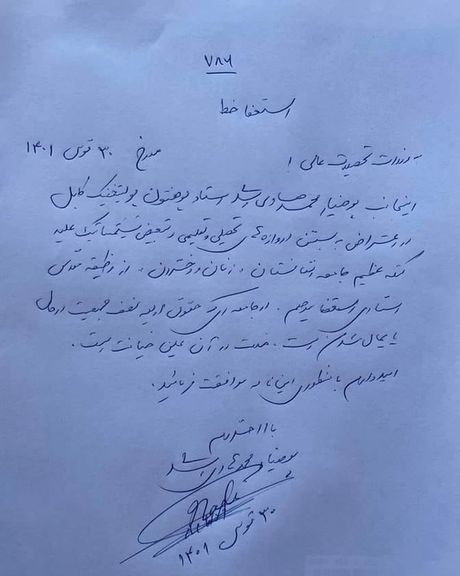 ۷۸۶
استعفا خط
به وزارت تحصیلات عالی! مورخ ۳۰ قوس ۱۴۰۱
اینجانب پوهنیار محمد هادی رشد استاد پوهنتون پولیتخنیک کابل
در اعتراض به بستن دروازه های تحصیلی و تعلیمی و تبعیض سیستماتیک علیه
کتله عظیم جامعه افغانستان، زنان و دختران، از وظیقه مقدس
استادی استعفا میدهم. در جامعه ای که حقوق اولیه نصف جمعیت در حال
پایمال شدن است، خدمت در آن عملی خیانت است.
امیدوارم با منظوری اینجانب موافقت فرمائید.
با احترام
پوهنیار محمد هادی رشد
۳۰ قوس ۱۴۰۱